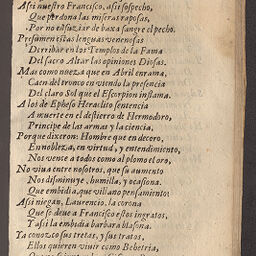 Assi nuestro Francisco, asi sospecho,
Que perdona las miseras raposas,
Por no ensuziar de baxa sangre el pecho.
Presumen estas lenguas venenosas
Derribar en los Templos de la Fama
Del sacro Altar las opiniones Diosas.
Mas como nueza que en Abril enrama,
Caen del tronco en viendo la presencia
Del claro Sol que el Escorpion inflama.
A los de Epheso Heraclito sentencia
A muerte en el destierro de Hermodoro,
Principe de las armas y la ciencia,
Porque dixeron: Hombre que en decoro,
En nobleza, en virtud, y entendimiento,
Nos vence a todos como al plomo el oro,
No viva entre nosotros, que su aumento
Nos disminuye, humilla, y ocasiona.
Que embidia, que villano pensamiento!
Assi niegan, Laurencio, la corona
Que se deve a Francisco estos ingratos,
Y assi la embidia barbara blasona.
Ya conozco sus tretas, y sus tratos,
Ellos quieren vivir como Behetria,